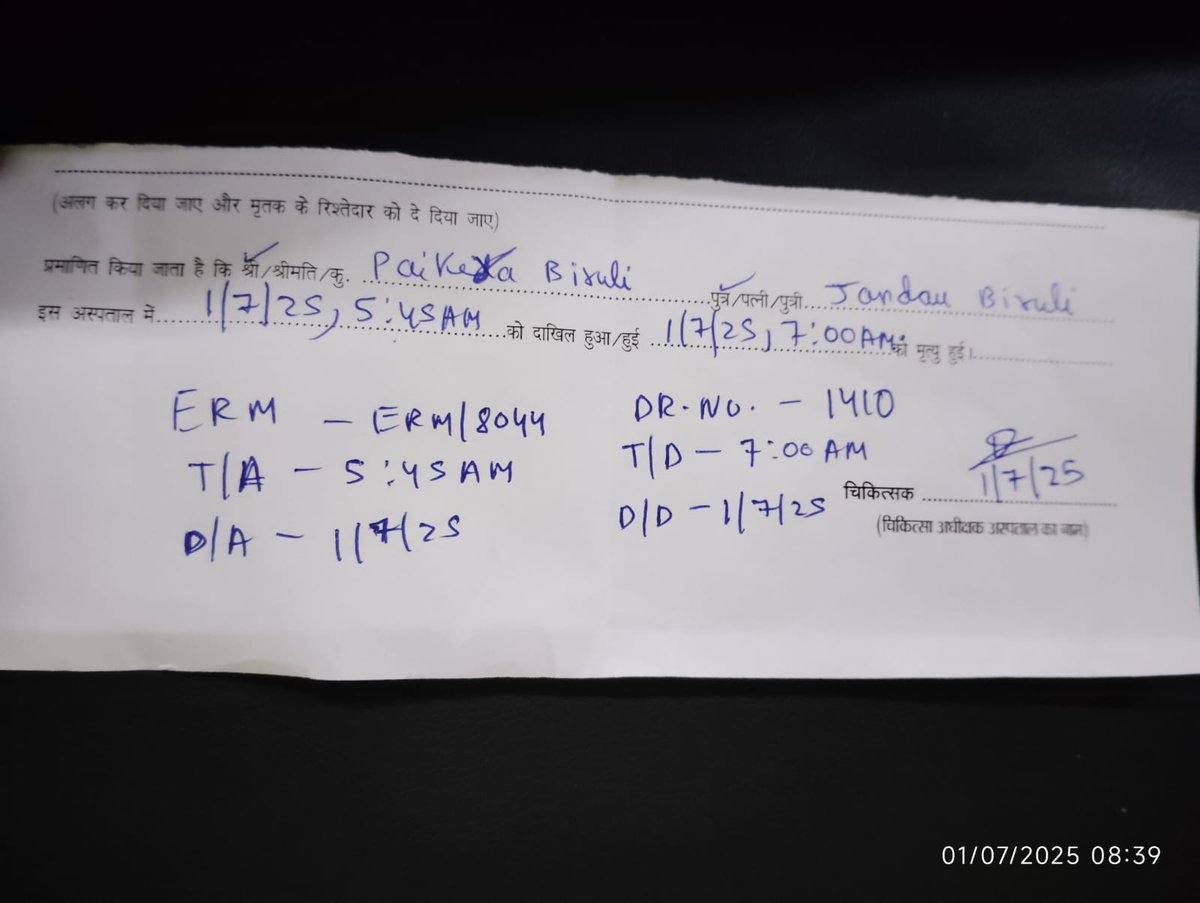 (अलग कर दिया जाए और मृतक के रिश्तेदार को दे दिया जाए)
प्रमाणित किया जाता है कि श्री/श्रीमति/कु. Paikera Biruli पुत्र/पत्नी/पुत्री.... Jandau Biruli
इस अस्पताल में 1/7/25, 5:45AM को दाखिल हुआ/हुई 1/7/25, 7:00AM. को मृत्यु हुई।
ERM - ERM/8044 DR. NO. - 1410
T/A - 5:45AM T/D - 7:00AM
D/A - 1/7/25 D/D - 1/7/25
1/7/25
चिकित्सक
(चिकित्सा अधीक्षक अस्पताल का नाम)
01/07/2025 08:39